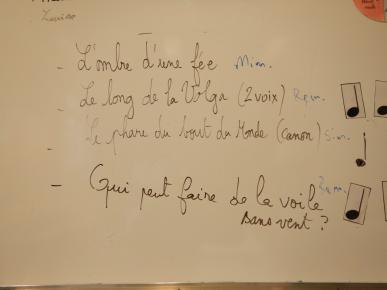 - L'ombre d'une fée Mim.
- Le long de la Volga (2 voix) Rém.
- Le phare du bout du Monde (canon) Sim.
- Qui peut faire de la voile
sans vent ?